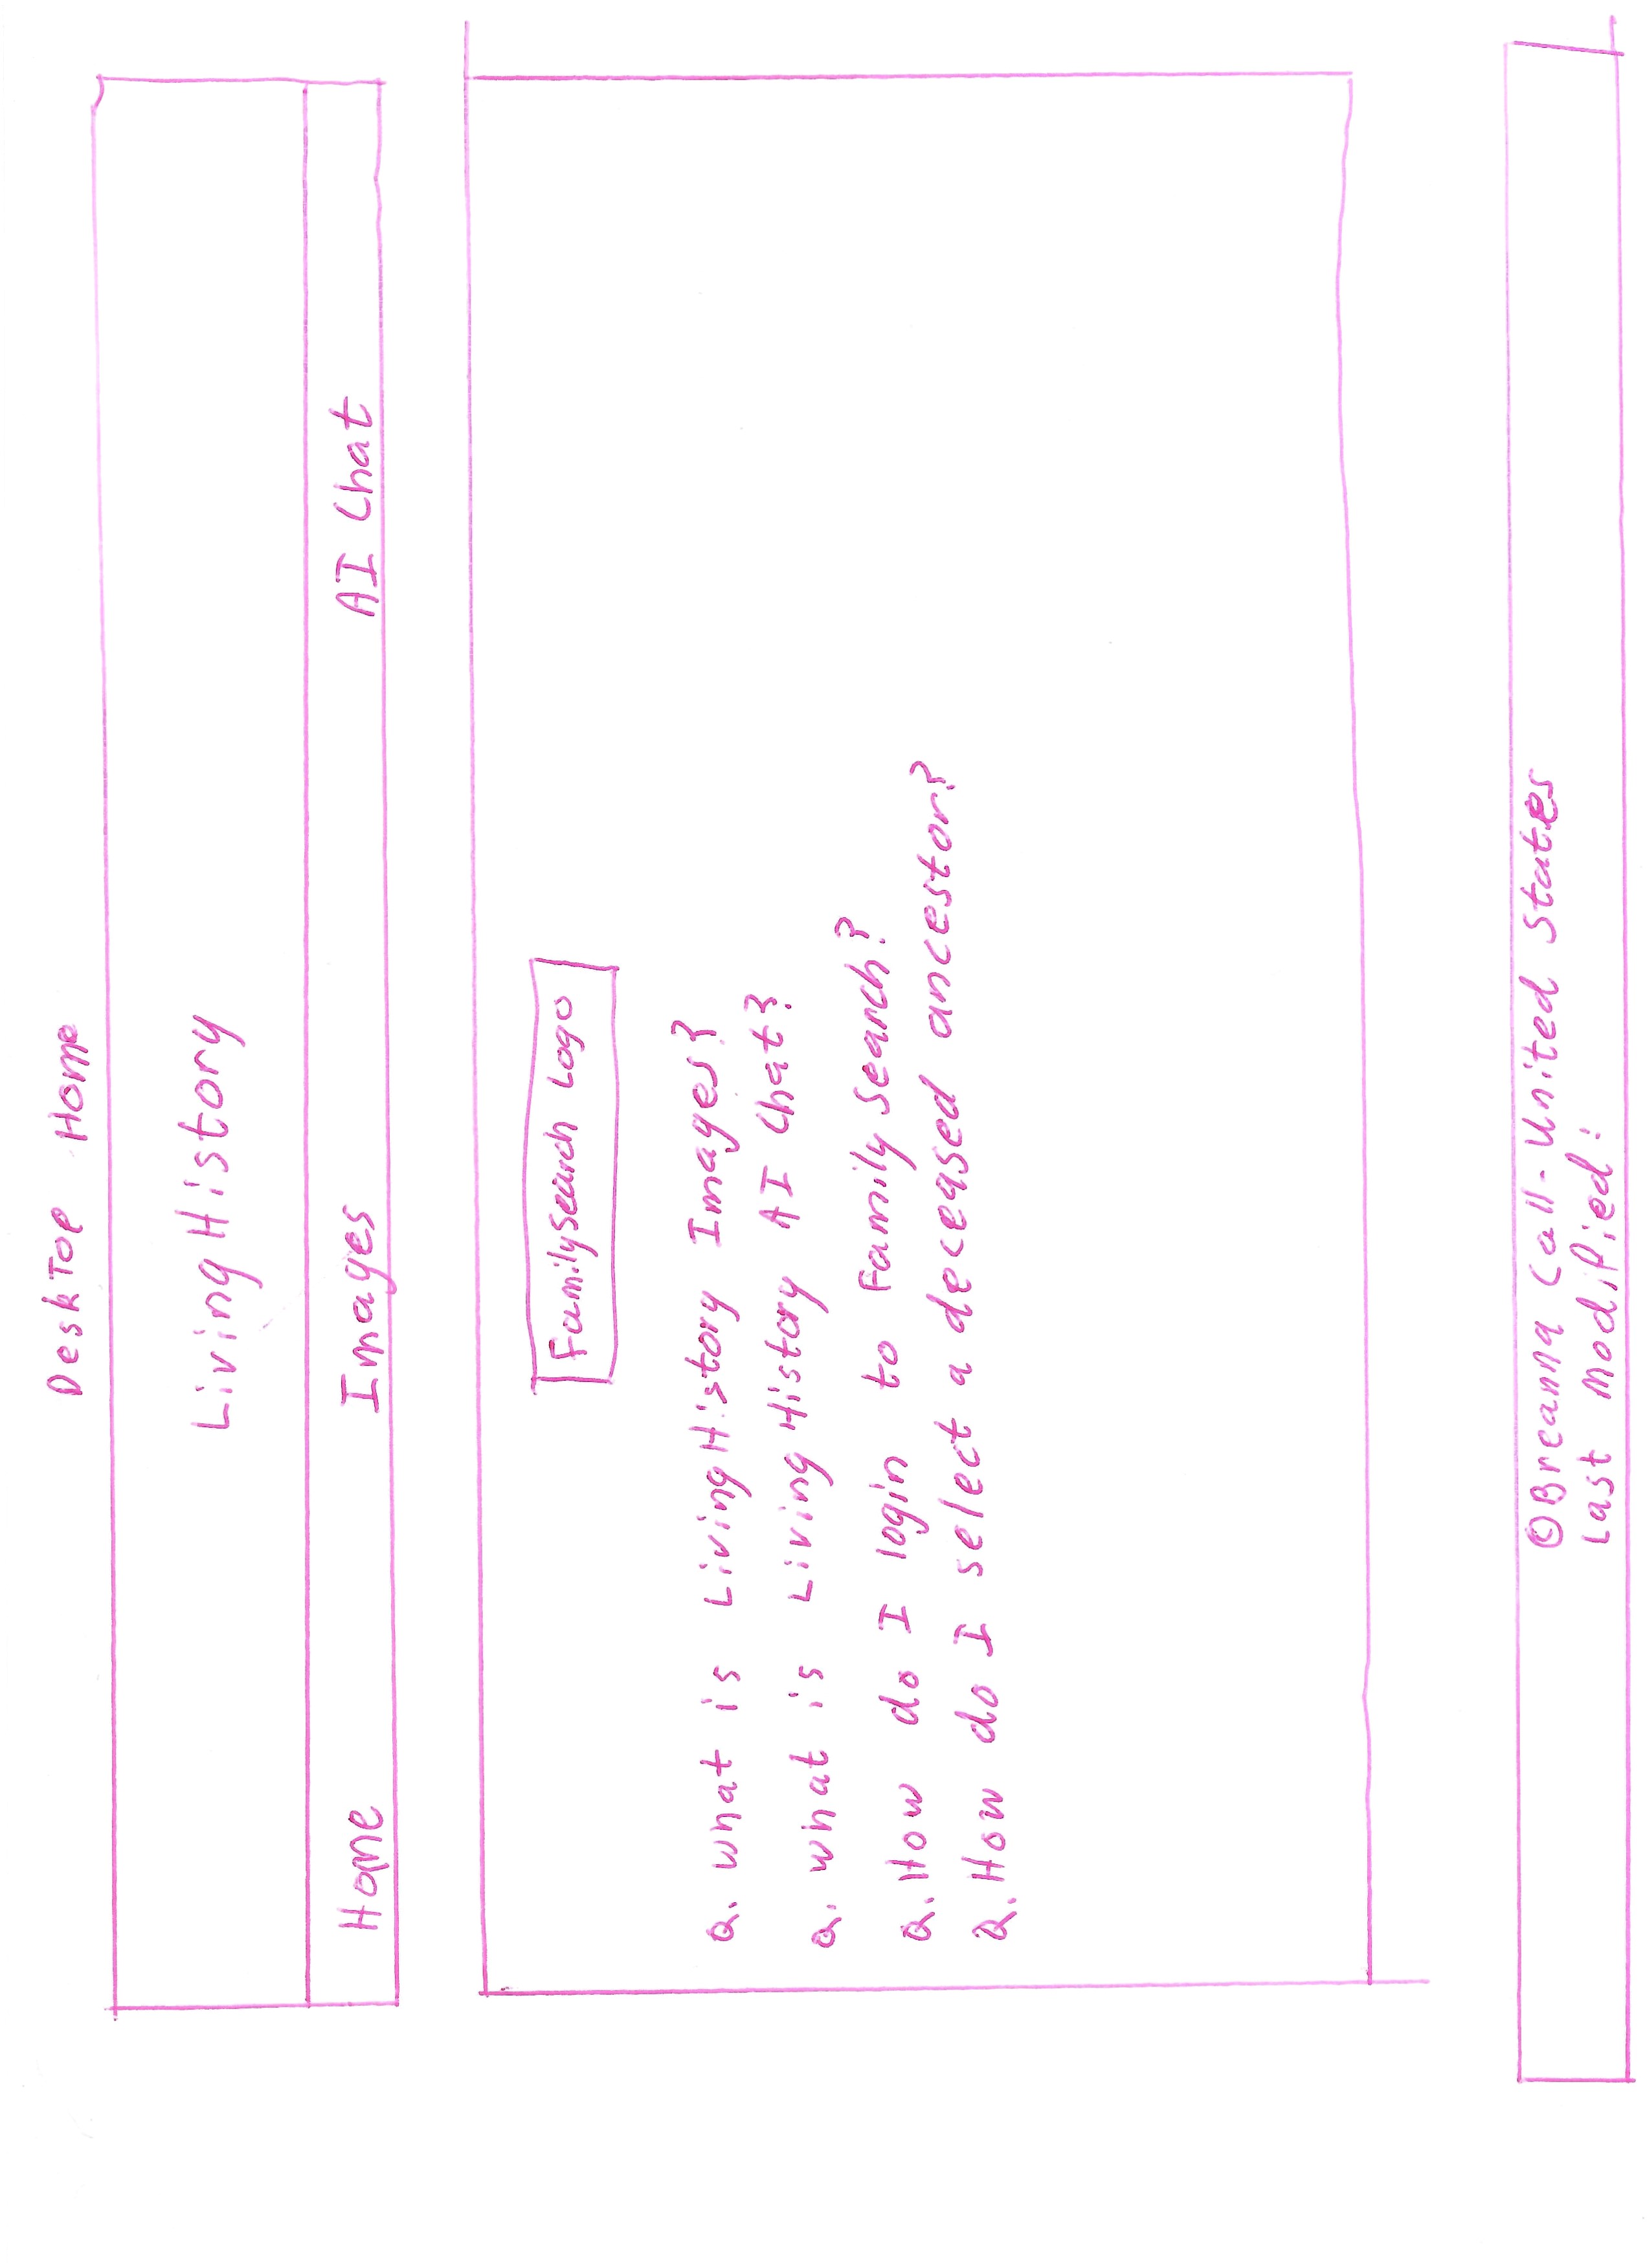 DeskTop Home
LivingHistory
Home Images AI Chat
FamilySearch Logo
Q. What is LivingHistory Images?
Q. What is LivingHistory AI Chat?
Q. How do I login to FamilySearch?
Q. How do I select a deceased ancestor?
©Breanna Call-United States
Last Modified: